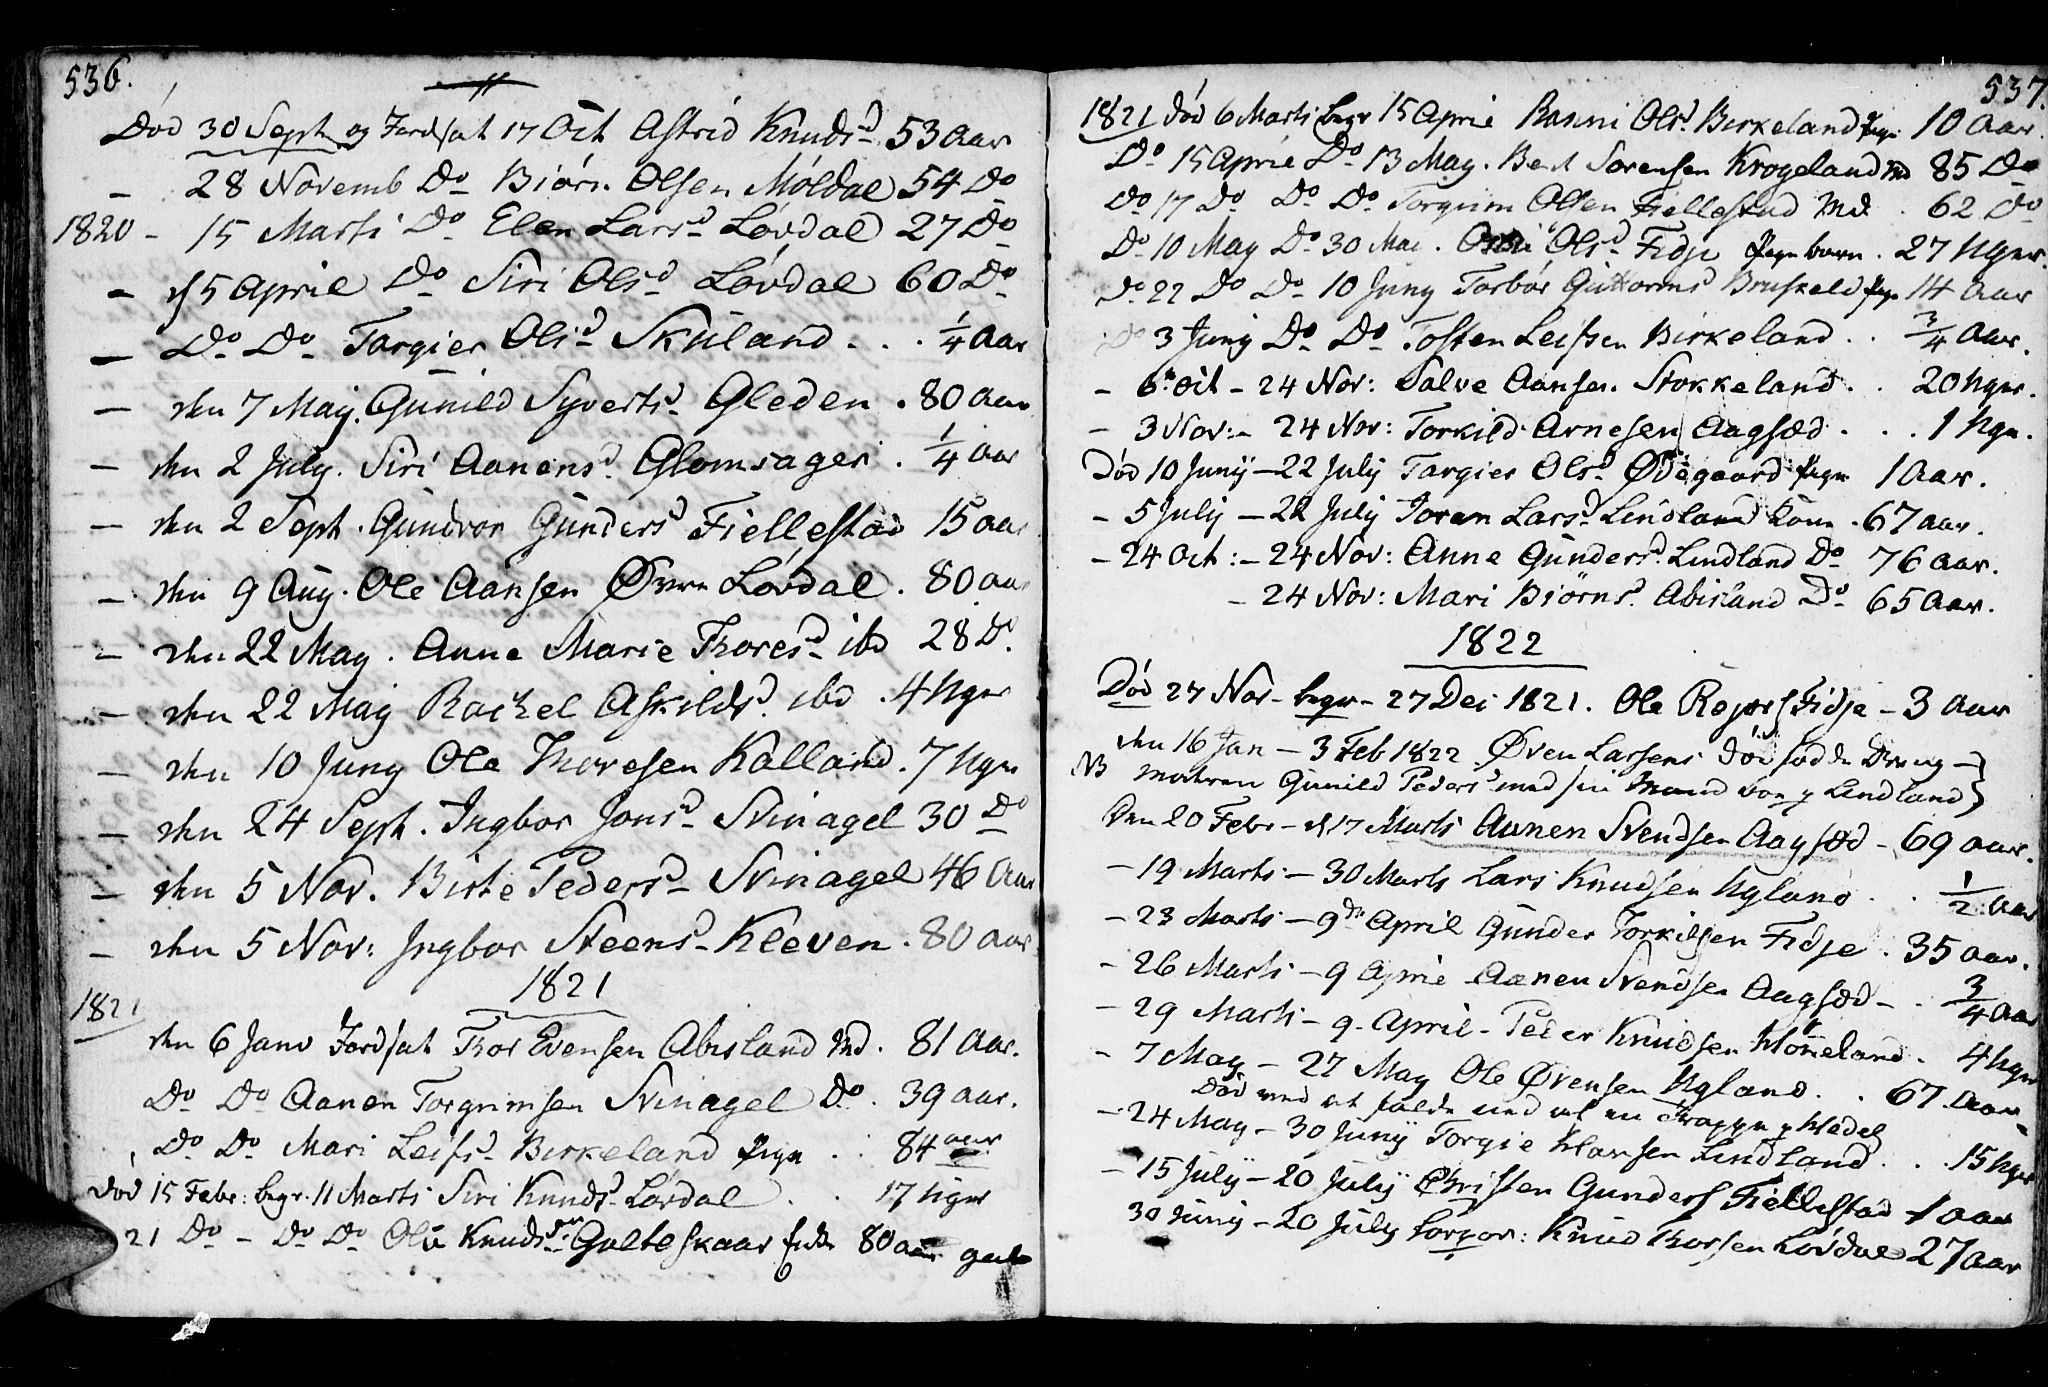 536.
Død 30 Sept og Jordsat 17 Oct Astrid Knudsd 53 Aar
- 28 Novemb Do Biørn Olsen Møldal 54 Do
1820 - 15 Marti Do Elen Larsd Løvdal 27 Do
- d 5 April Do Siri Olsd Løvdal 60 Do
- Do Do Targier Olsd Skuland . . . 1/4 Aar
- den 7 May. Gunild Syvertsd Gleden . 80 Aar
- den 2 July. Siri Aanensd Glomsager . 1/4 Aar
- den 2 Sept. Gundvor Gundersd Fiellestad 15 Aar
- den 9 Aug. Ole Aansen Øvre Løvdal . 80 Aar
- den 22 May. Anne Marie Thoresd ibd 28 Do
- den 22 May Rachel Askildsd ibd . 4 Uger
- den 10 Juny Ole Thoresen Kalland . 7 Uger
- den 24 Sept. Ingbor Jonsd Svinagel 30 Do
- den 5 Nov. Birte Pedersd Svinagel 46 Aar
- den 5 Nov: Ingbor Steensd Kleven . 80 Aar
1821
1821 den 6 Janv Jordsat Thor Evensen Abisland Md. 81 Aar.
Do Do Aanen Torgrimsen Svinagel Do . 39 Aar.
Do Do Mari Leifsd Birkeland Pige . . 84 aar
Død 15 Febr: begr. 11 Marti Siri Knudsd Løvdal . . 17 Uger
21 Do - Do Do Knudsd Galteskaar 80 aar gml
537.
1821 Død 6 Marti begr 15 April Ranni Olsd Birkeland Pige 10 Aar.
Do 15 April Do 13 May. Bent Sørensen Krogeland Md 85 Do
Do 17 Do Do Do Torgrim Olsen Fiellestad Md . 62 Do
Do 10 May Do 30 Mai . Olsd Fidje Pigebarn . 27 Uger.
Do 22 Do Do 10 Juny Torbør Guttormsd Bruskeld Pige 14 Aar
Do 3 Juny Do Do Tosten Leifsen Birkeland . . 3/4 Aar.
- 6te Oct - 24 Nov: Salve Aansen Stokkeland . . 20 Uger.
- 3 Nov: - 24 Nov: Torkild Arnesen Aagsæd . . . 1 Uge.
Død 10 Juny - 22 July Targier Olsd Ødegaard Pige 1 Aar.
- 5 July - 22 July Joren Larsd Lindland Kone . 67 Aar.
- 24 Oct: - 24 Nov: Anne Gundersd Lindland Do 76 Aar.
- 24 Nov: Mari Biørnsd Abisland Do 65 Aar.
1822
Død 27 Nov - begr - 27 Dec 1821. Ole Fidje - 3 Aar
den 16 Jan - 3 Feb 1822 Øven Larsens død fødde Dreng -
NB Moderen Gunild Pedersd med sin Mand boe p Lindland
den 20 Febr - d 17 Marti Aanen Svendsen Aagsæd - 69 aar.
- 19 Marti - 30 Marti Lars Knudsen Ugland . . 1/2 Aar
- 23 Marti - 9de April Gunder Torkilsen Fidje . 35 aar.
- 26 Marti - 9 April Aanen Svendsen Aagsæd - . 3/4 Aar
- 29 Marti - 9 April - Peder Knudsen . 4 Uger
- 7 May - 27 May Ole Øvensen Ugland . . 67 Aar
Død ved at falde ned af en Trappe p Hædel
- 24 May - 30 Juny Torgie Hansen Lindland . . . 15 Uger
- 15 July - 20 July Christen Gunders Fiellestad 1 aar
30 Juny - 20 July Knud Thorsen Løvdal 27 Aar